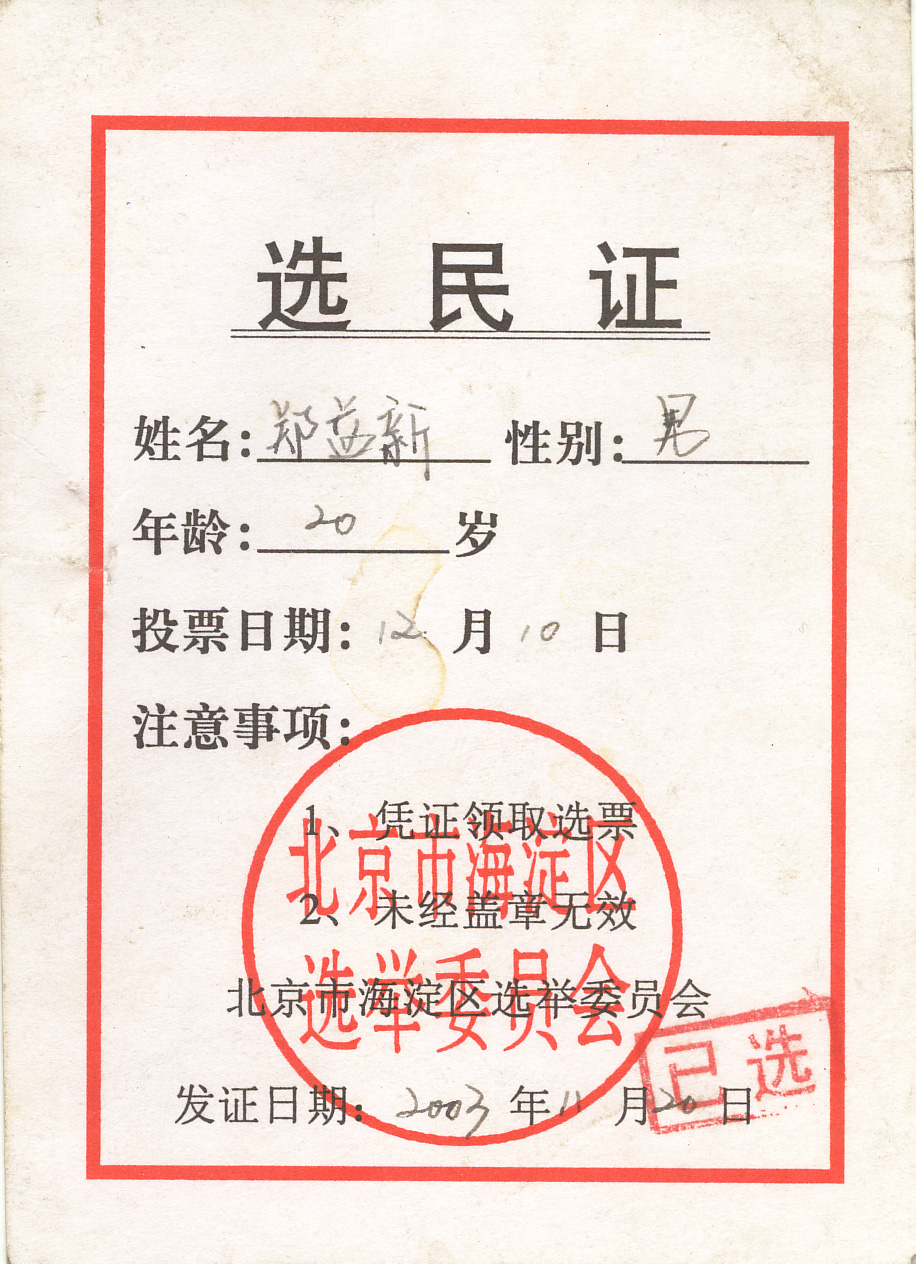 选民证
姓名：郑益新 性别：男
年龄：20岁
投票日期：12月10日
注意事项：
1、凭证领取选票
2、未经盖章无效
北京市海淀区选举委员会
发证日期：2003年11月20日
北京市海淀区
选举委员会
已选